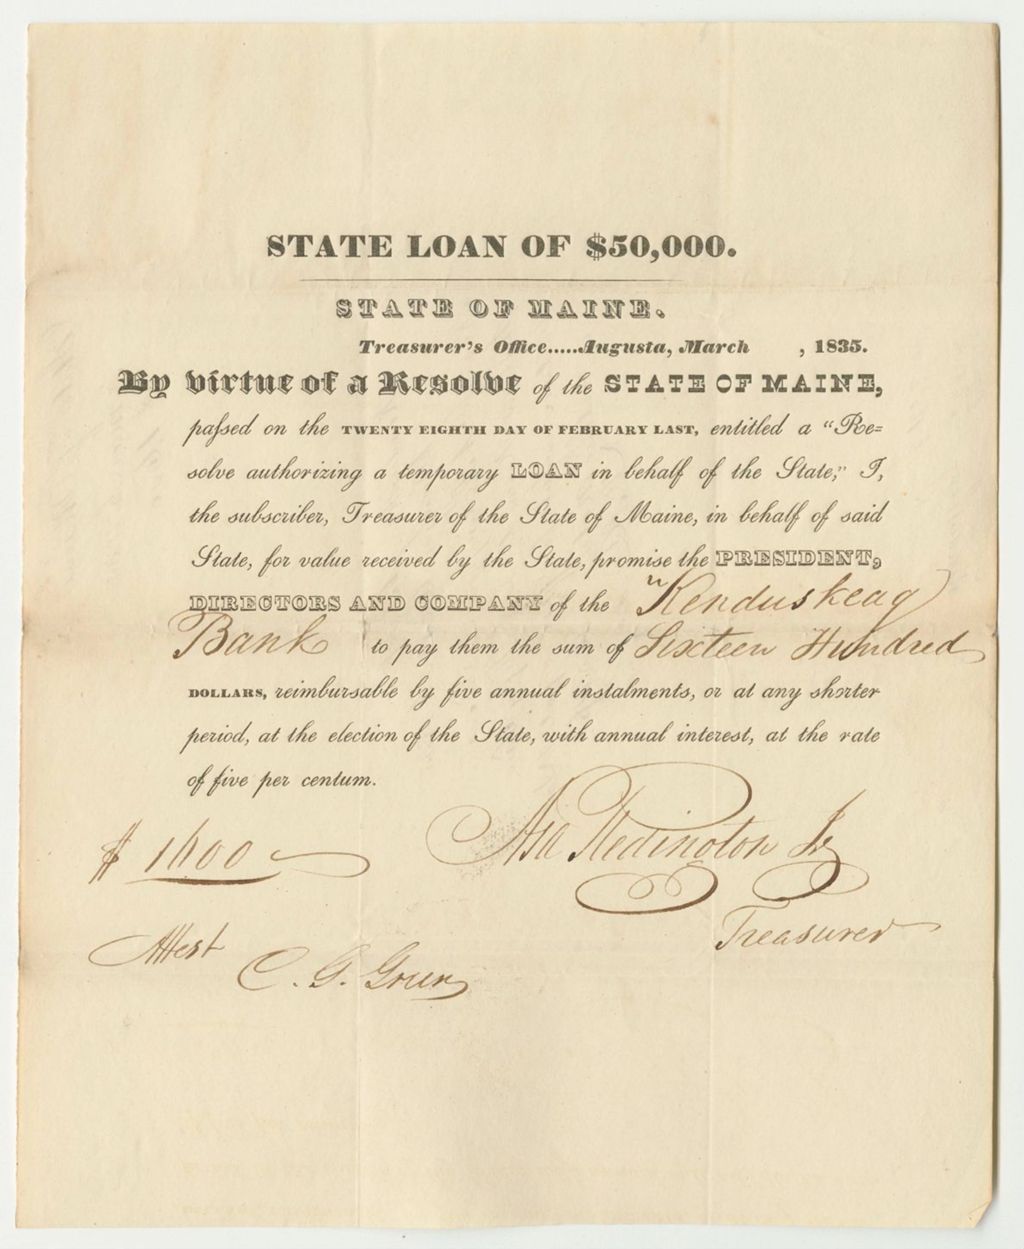 STATE LOAN OF $50,000.
STATE OF MAINE.
Treasurer's Office.....Augusta, March , 1835.
By virtue of a Resolve of the STATE OF MAINE,
passed on the TWENTY EIGHTH DAY OF FEBRUARY LAST, entitled a "Re=
solve authorizing a temporary LOAN in behalf of the State," I,
the subscriber, Treasurer of the State of Maine, in behalf of said
State, for value received by the State, promise the PRESIDENT,
DIRECTORS AND COMPANY of the Kenduskeag
Bank to pay them the sum of Sixteen Hundred
DOLLARS, reimbursable by five annual instalments, or at any shorter
period, at the election of the State, with annual interest, at the rate
of five per centum.
$ 1600
Asa Redington Jr
Treasurer
Attest
C. G.